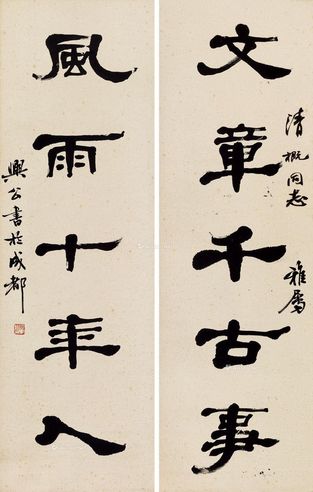 文章千古事
清概同志
雅屬
風雨十年人
興公書於成都